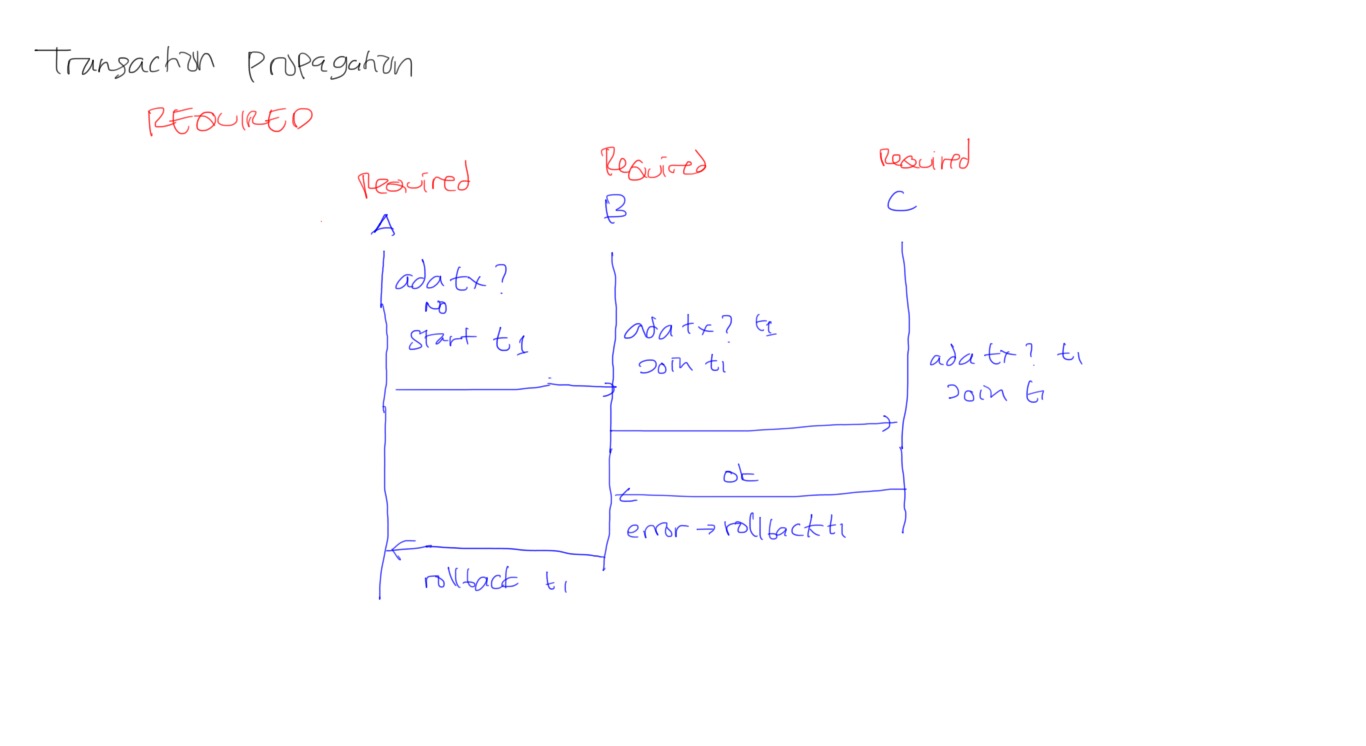 Transaction Propagation
REQUIRED
Required
Required
Required
A
B
C
ada tx?
NO
start t1
ada tx? t1
Join t1
ada tx? t1
Join t1
ok
error → rollback t1
rollback t1